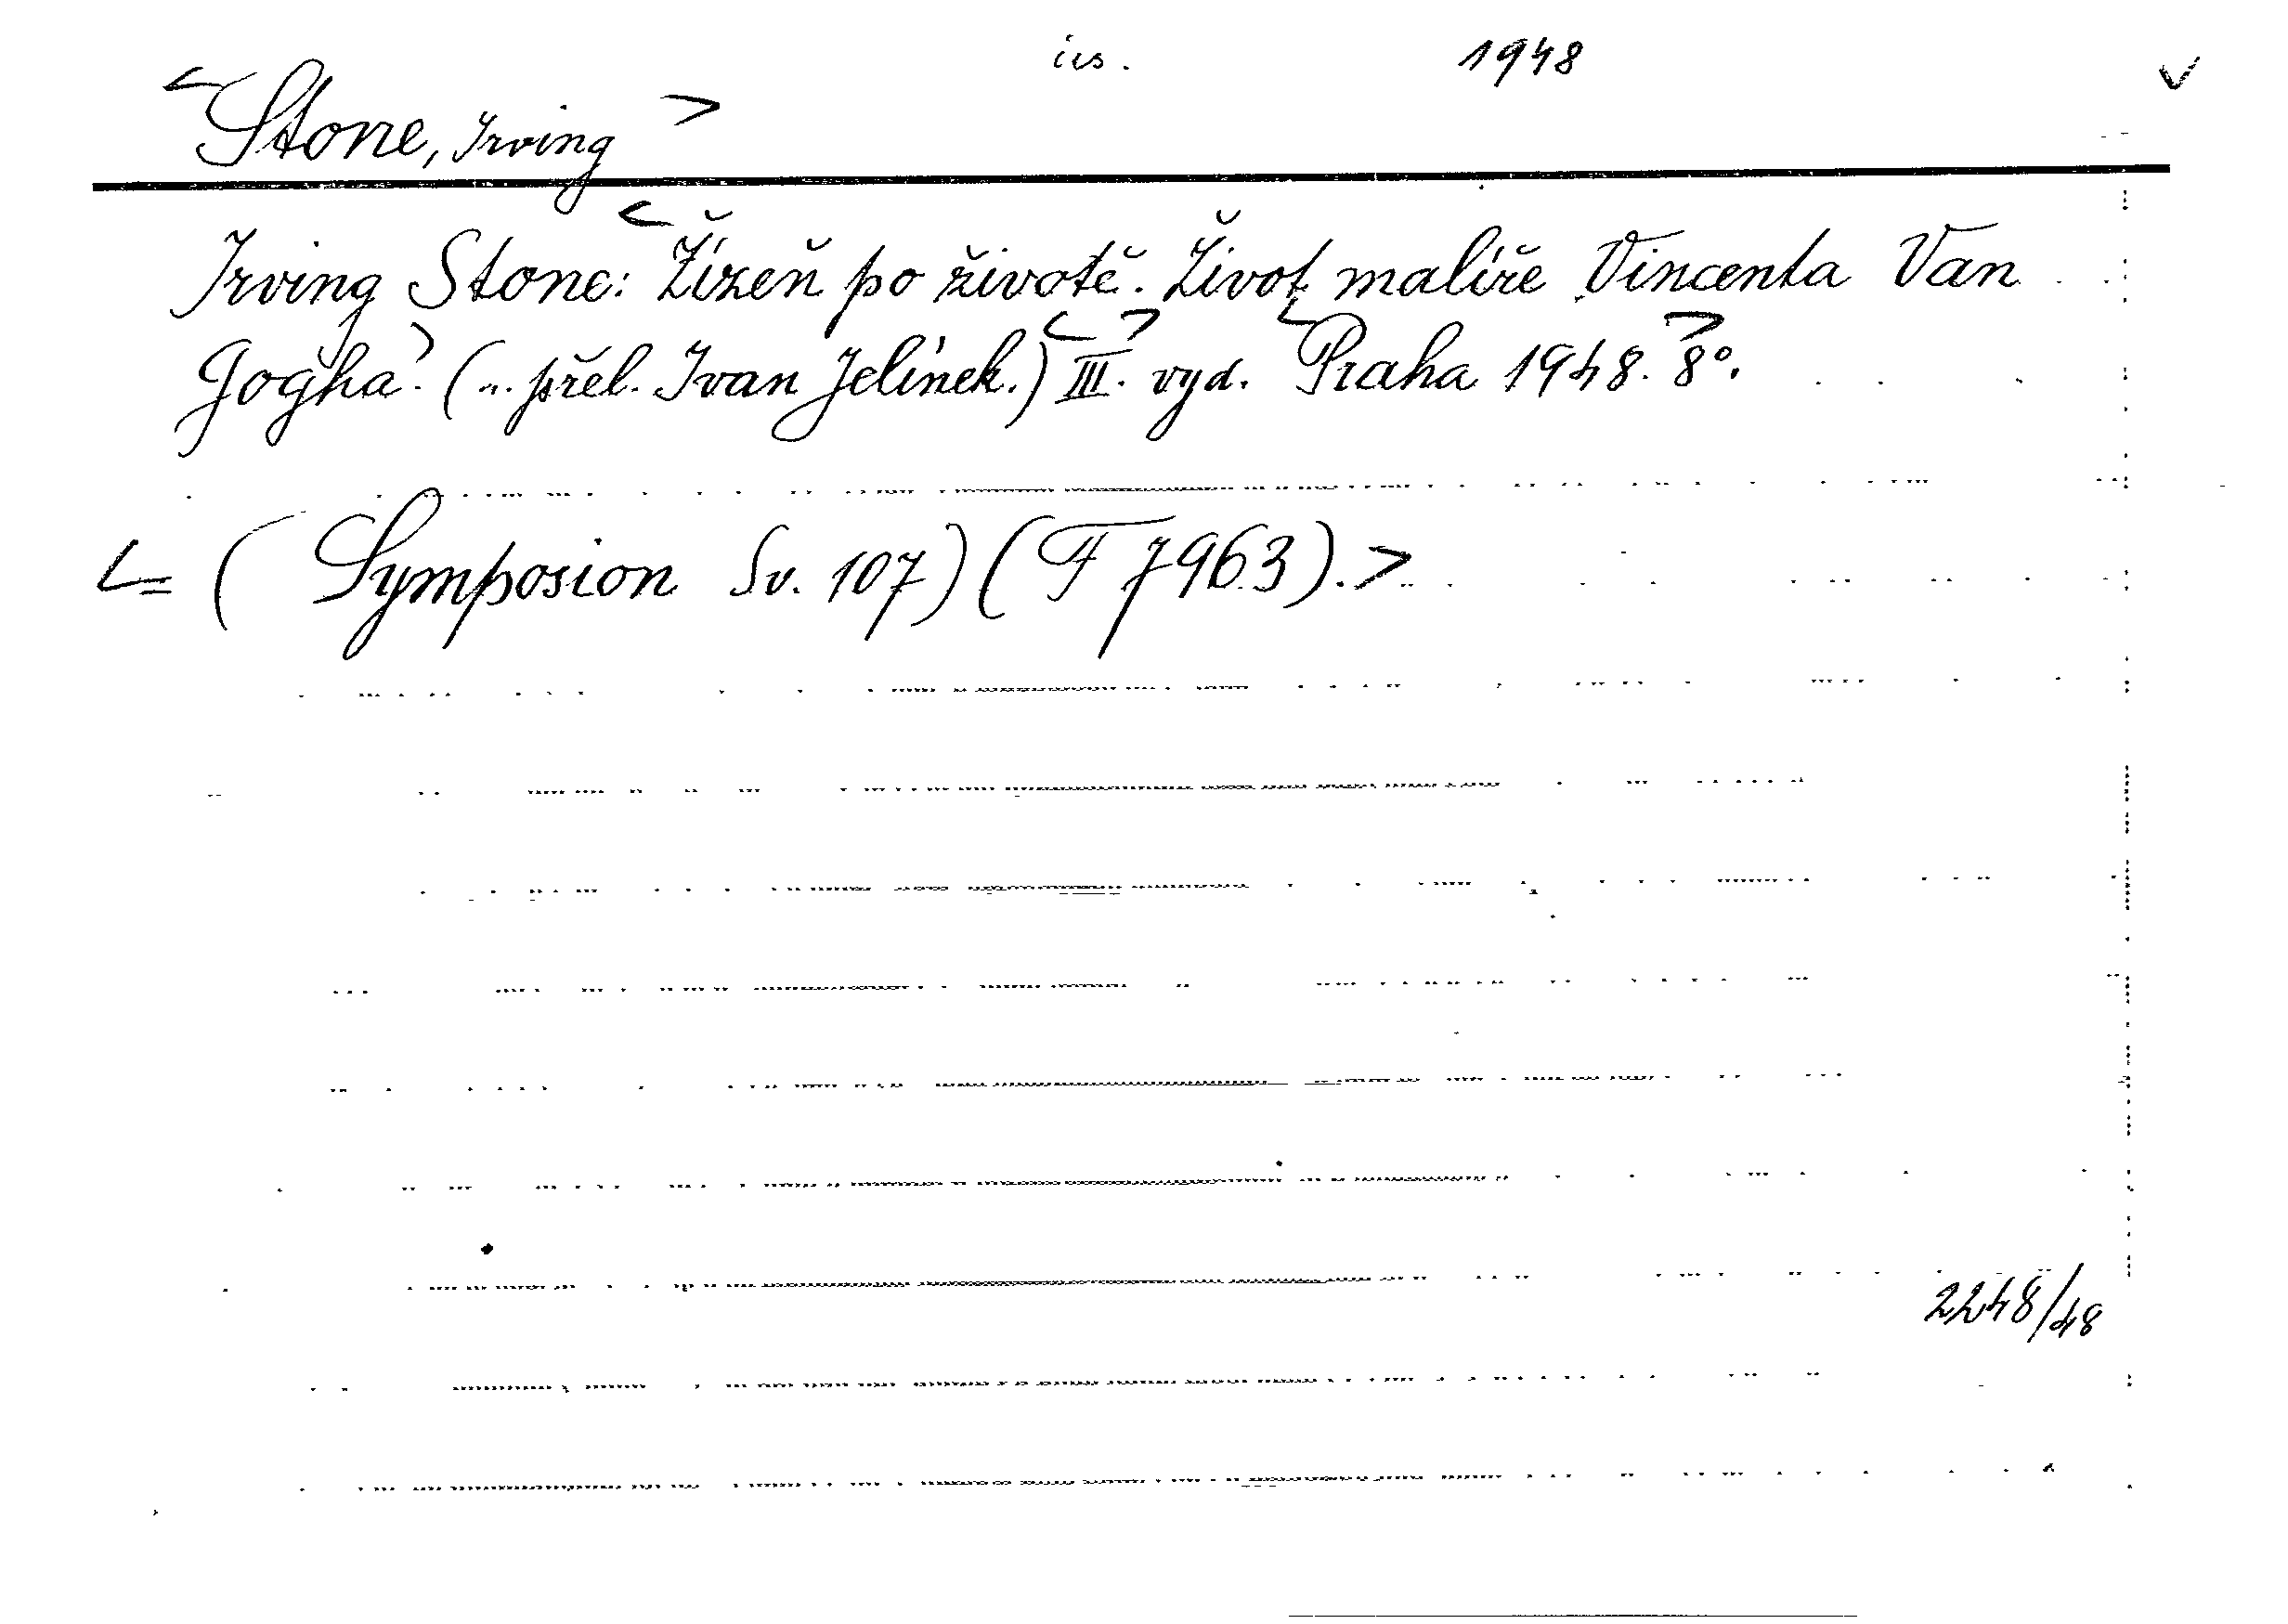 ius. 1948
<Stone, Irving>
Irving Stone: <Žízeň po životě. Život malíře Vincenta Van
Gogha.> (.. přel. Ivan Jelínek.) <III.> vyd. <Praha 1948.> 8°.
<= (Symposion Sv. 107) (F 7963).>
2248/48